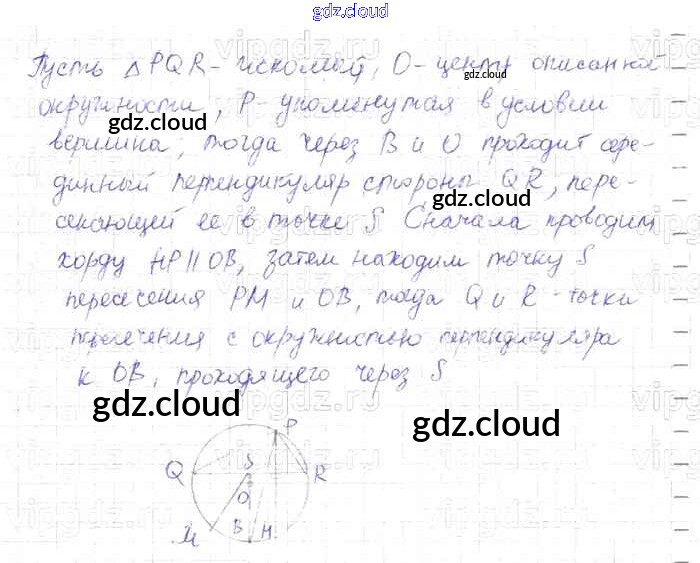 gdz.cloud
Пусть △ PQR - искомый, O - центр описанной
окружности, P - упомянутая в условии
вершина, тогда через B и O проходит сере-
динный перпендикуляр стороны QR, пере-
секающей ее в точке S Сначала проводим
хорду HP || OB, затем находим точку S
пересесения PM и OB, тогда Q и R - точки
пересечения с окружностью перпендикуляра
к OB, проходящего через S
gdz.cloud
gdz.cloud
gdz.cloud
gdz.cloud
gdz.cloud
gdz.cloud
P
Q S R
O
M B H